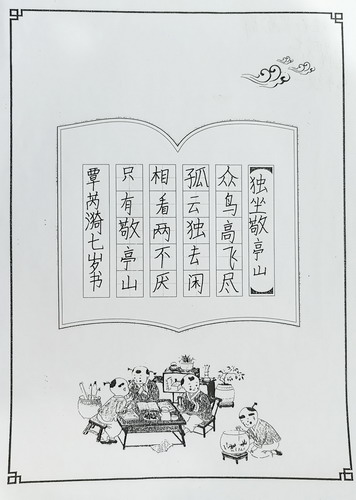 独坐敬亭山
众鸟高飞尽
孤云独去闲
相看两不厌
只有敬亭山
覃芮漪七岁书